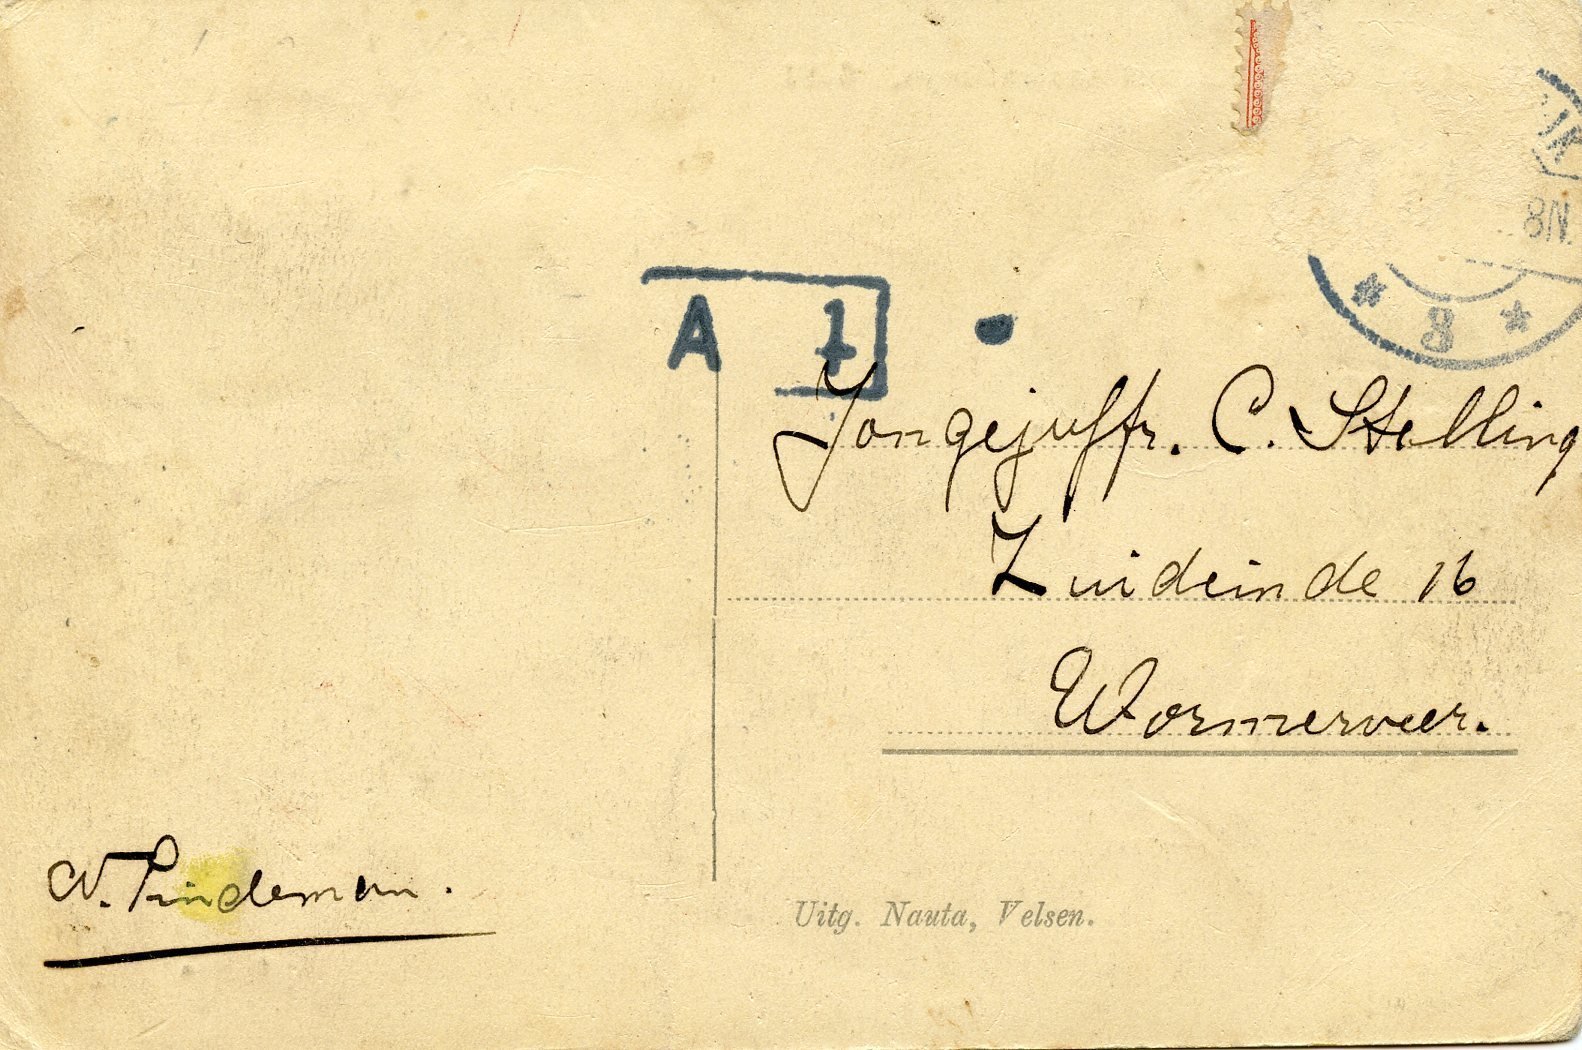 8N.
8
A 1
Jongejuffr. C. Stelling
Zuideinde 16
Wormerveer.
N. Pindeman.
Uitg. Nauta, Velsen.